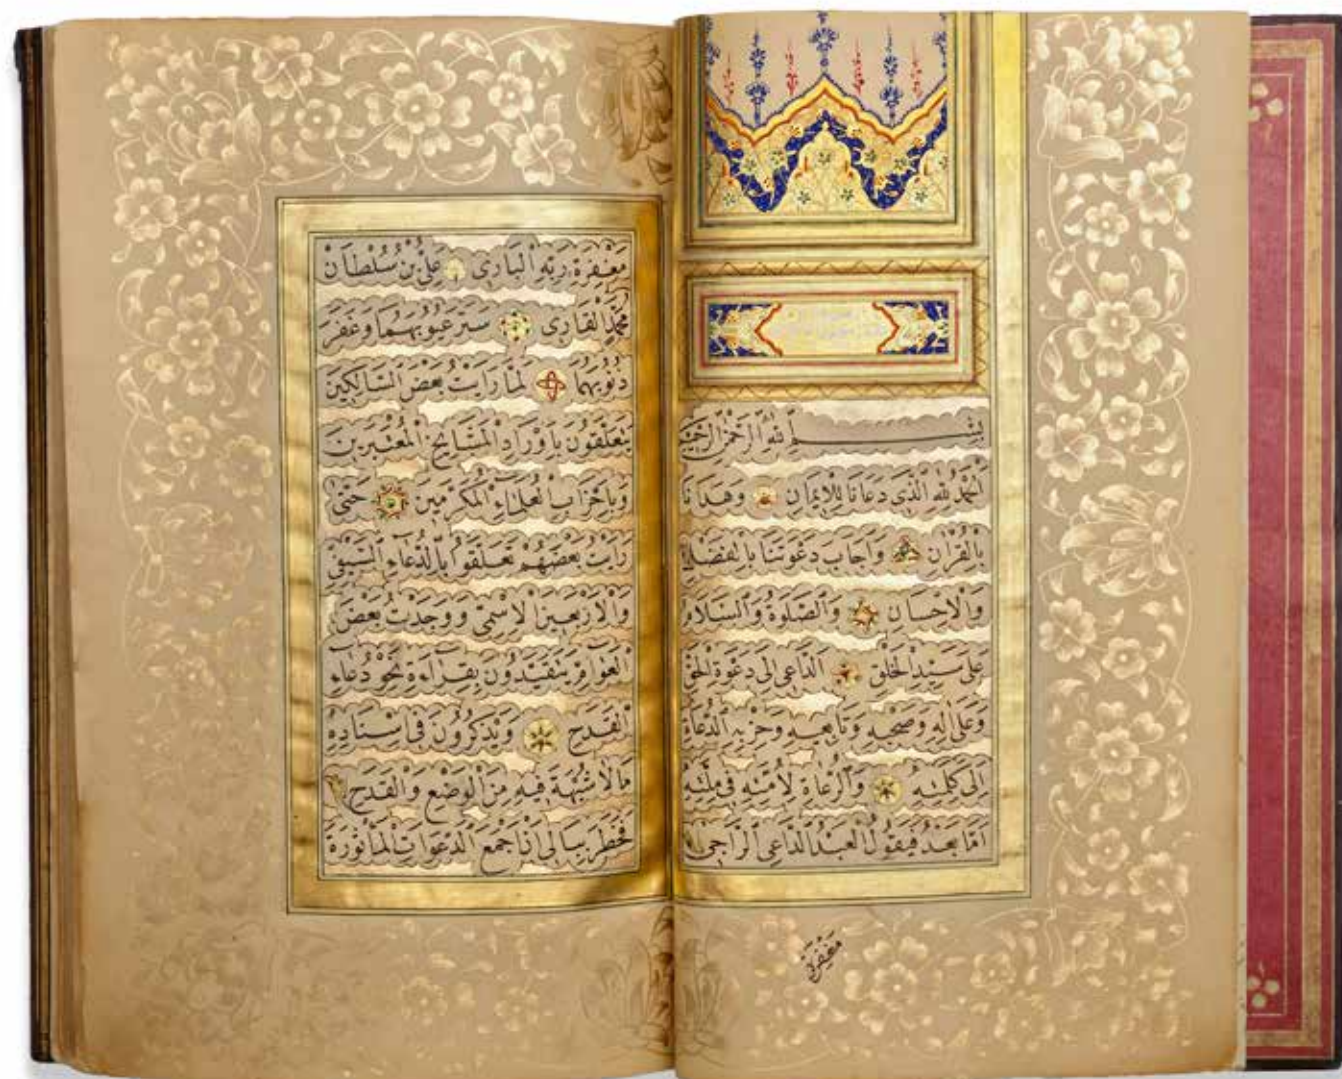 بِسْــــمِ اللّٰهِ الرَّحْمٰنِ الرَّحِيْمِ
اَلْحَمْدُ لِلّٰهِ الَّذِى دَعَانَا لِلْاِيْمَانِ وَهَدَانَا
بِالْقُرْاٰنِ وَاَجَابَ دَعْوَتَنَا بِالْفَضْلِ
وَالْاِحْسَانِ وَالصَّلٰوةُ وَالسَّلَامُ
عَلٰى سَيِّدِ الْخَلْقِ الدَّاعِى اِلٰى دَعْوَةِ الْحَقِّ
وَعَلٰى اٰلِهِ وَصَحْبِهِ وَتَابِعِيهِ وَحِزْبِهِ الدُّعَاةِ
اِلٰى كَلِمَتِهِ وَالرُّعَاةِ لِاُمَّتِهِ فِى مِلَّتِهِ
اَمَّا بَعْدُ فَيَقُولُ الْعَبْدُ الدَّاعِى الرَّاجِى
مَغْفِرَةَ
مَغْفِرَةَ رَبِّهِ الْبَارِى عَلِىُّ بْنُ سُلْطَانْ
مُحَمَّدٍ الْقَارِى سَتَرَ عُيُوبَهُمَا وَغَفَرَ
ذُنُوبَهُمَا لَمَّا رَاَيْتُ بَعْضَ السَّالِكِينَ
يَتَعَلَّقُونَ بِاَوْرَادِ الْمَشَايِخِ الْمُعْتَبَرِينَ
وَبِاَحْزَابِ الْعُلَمَاءِ الْمُكَرَّمِينَ حَتّٰى
رَاَيْتُ بَعْضَهُمْ تَعَلَّقُوا بِالدُّعَاءِ السَّيْفِىِّ
وَالْاَرْبَعِينَ الْاِسْمِىِّ وَوَجَدْتُ بَعْضَ
الْعَوَامِّ يَتَقَيَّدُونَ بِقِرَاءَةِ نَحْوِ دُعَاءِ
الْقَدَحِ وَيَذْكُرُونَ فِى اِسْنَادِهِ
مَالَا شُبْهَةَ فِيهِ مِنَ الْوَضْعِ وَالْقَدْحِ
فَخَطَرَ بِبَالِى اَنْ اَجْمَعَ الدَّعَوَاتِ الْمَأْثُورَةَ